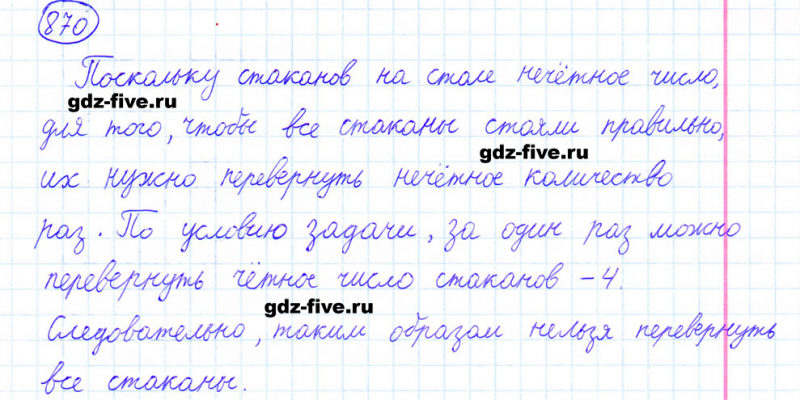 870
Поскольку стаканов на столе нечётное число,
gdz-five.ru
для того, чтобы все стаканы стояли правильно,
gdz-five.ru
их нужно перевернуть нечётное количество
раз. По условию задачи, за один раз можно
перевернуть чётное число стаканов – 4.
gdz-five.ru
Следовательно, таким образом нельзя перевернуть
все стаканы.